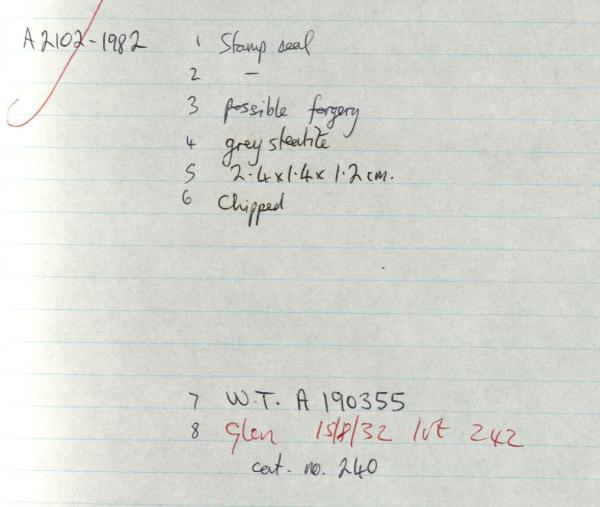 A2102-1982 1 Stamp seal
2 -
3 possible forgery
4 grey steatite
5 2.4x1.4x1.2cm.
6 Chipped
7 W.T. A 190355
8 Glen 15/8/32 lot 242
cat. no. 240